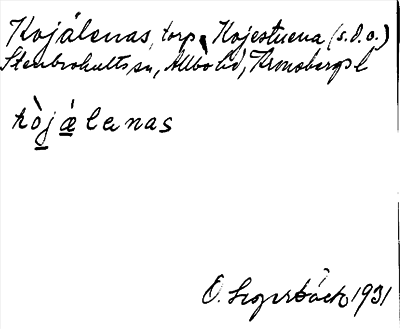 Kojálenas, torp, Kojestuena (s.d.o.)
Stenbrohults sn, Allbo hd, Kronobergs l
kòjálenas
O. Segerbäck 1931